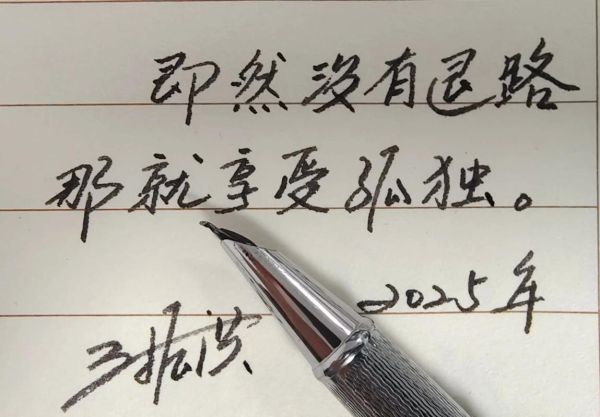 即然没有退路
那就享受孤独。
2025年
王振洪